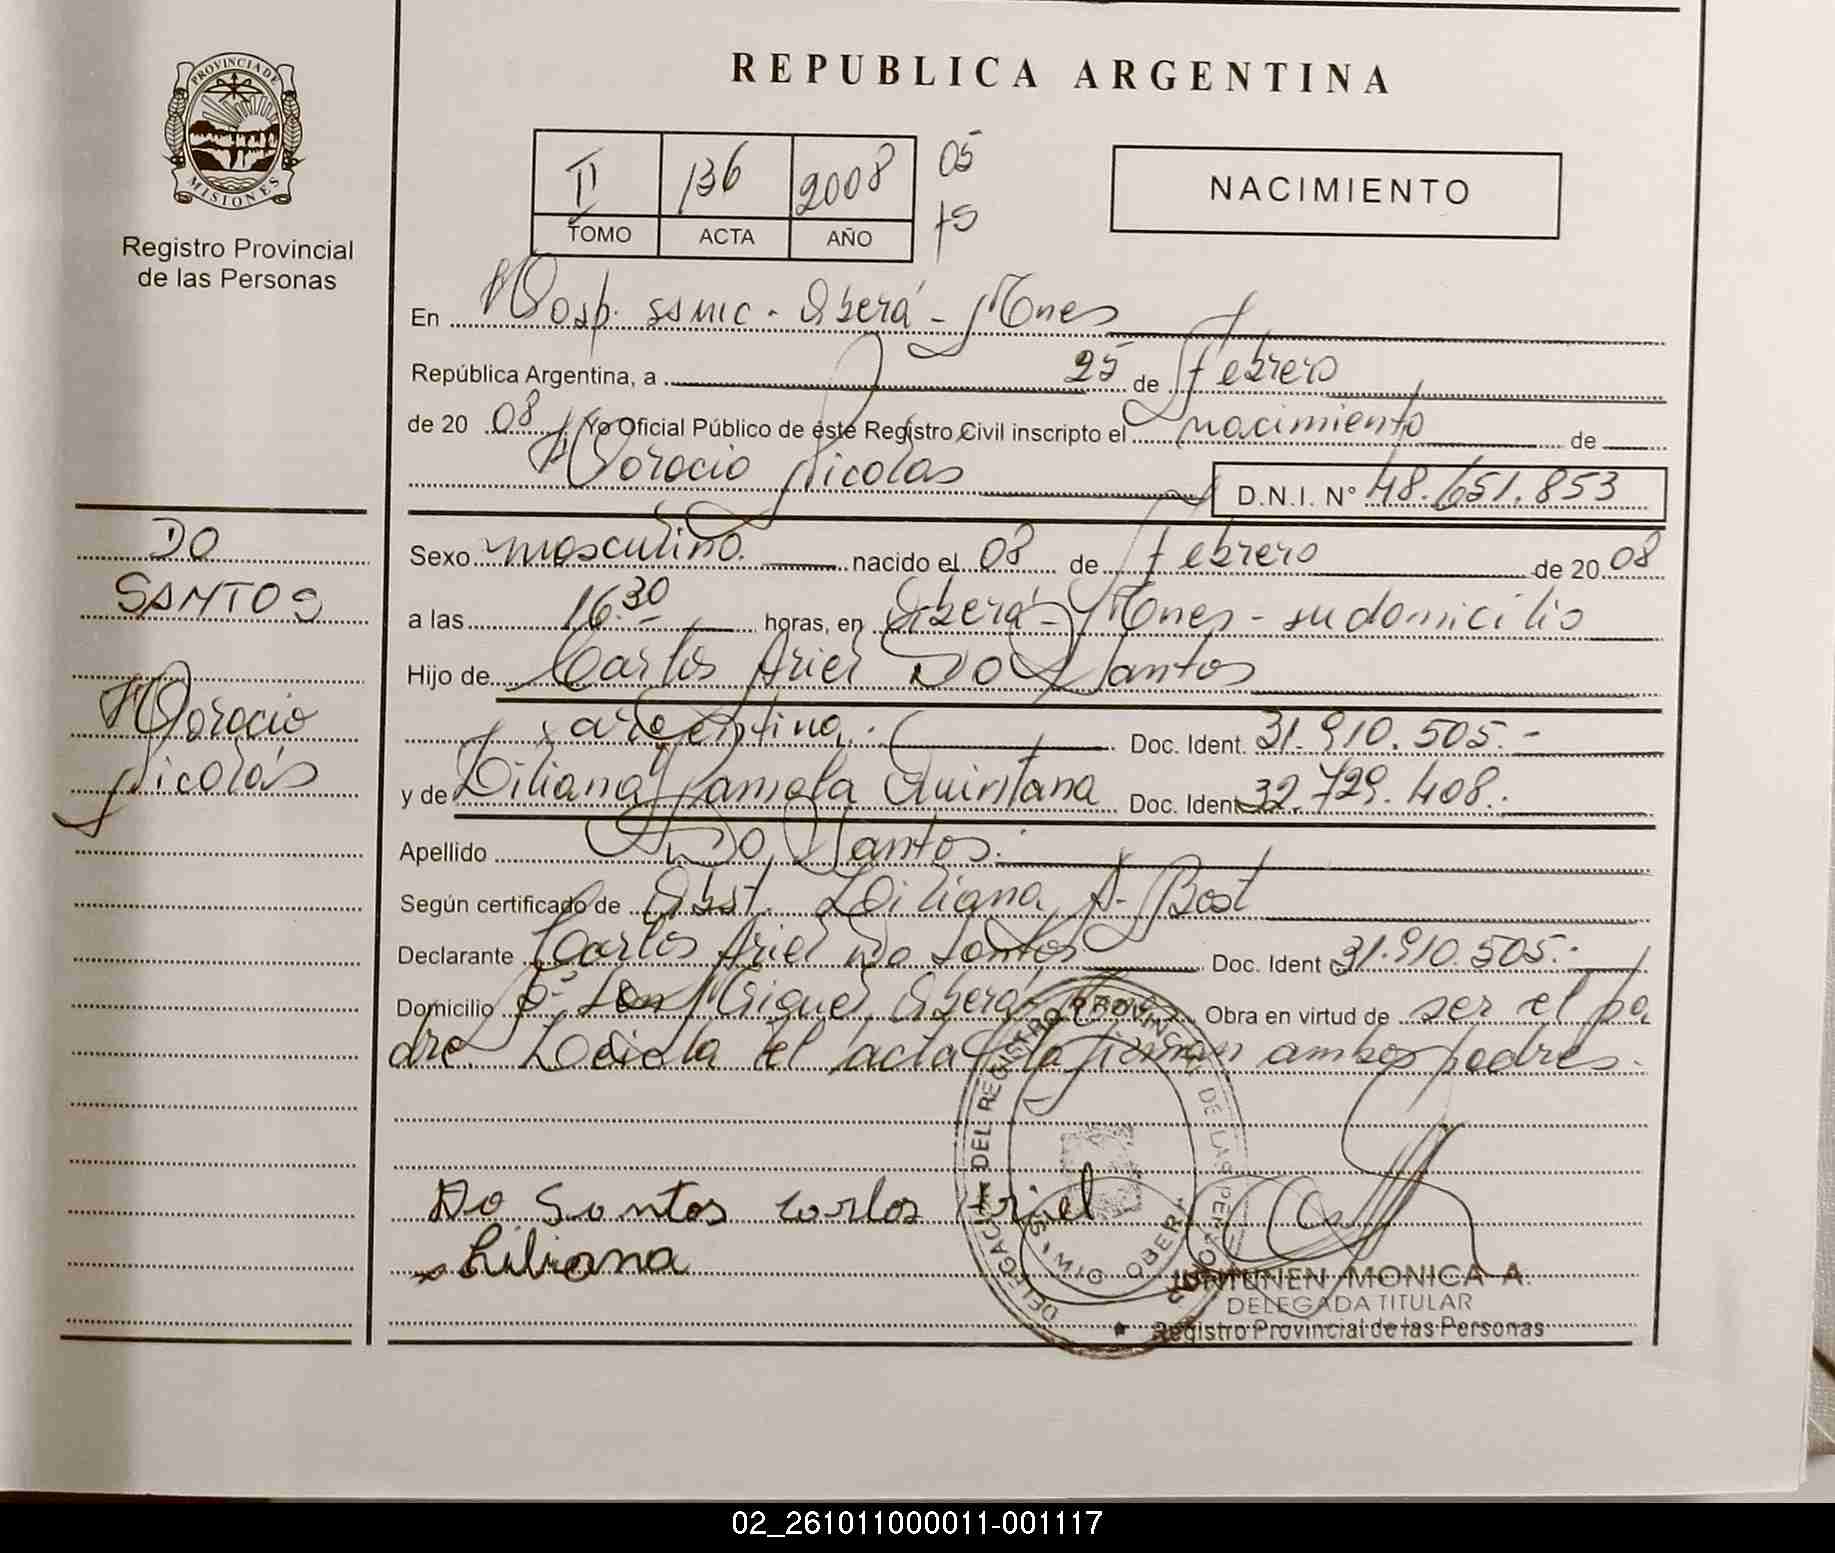 PROVINCIA DE
MISIONES
Registro Provincial
de las Personas
REPUBLICA ARGENTINA
II 136 2008 05
TOMO ACTA AÑO
NACIMIENTO
En Hosp. SAMIC - Oberá - Mnes
República Argentina, a 25 de Febrero
de 20 08 Yo Oficial Público de este Registro Civil inscripto el nacimiento de
Horacio Nicolas D.N.I. N° 48.651.853
DO
SANTOS
Horacio
Nicolás
Sexo masculino. nacido el 08 de Febrero de 20 08
a las 16.30 horas, en Oberá - Mnes - su domicilio
Hijo de Carlos Ariel Do Santos
argentina. Doc. Ident. 31.910.505.-
y de Liliana Pamela Quintana Doc. Ident 32.729.408.
Apellido Do Santos.
Según certificado de Obst. Liliana A. Bost
Declarante Carlos Ariel Do Santos Doc. Ident 31.910.505.-
Domicilio Bº San Miguel, Oberá Obra en virtud de ser el pa
dre. Leida el acta la firman ambos padres.
Do Santos Carlos Ariel
Liliana
DELEGACION DEL REGISTRO PROVINCIAL DE LAS PERSONAS
OBERA
JUNTUNEN MONICA A.
DELEGADA TITULAR
Registro Provincial de las Personas
02_261011000011-001117